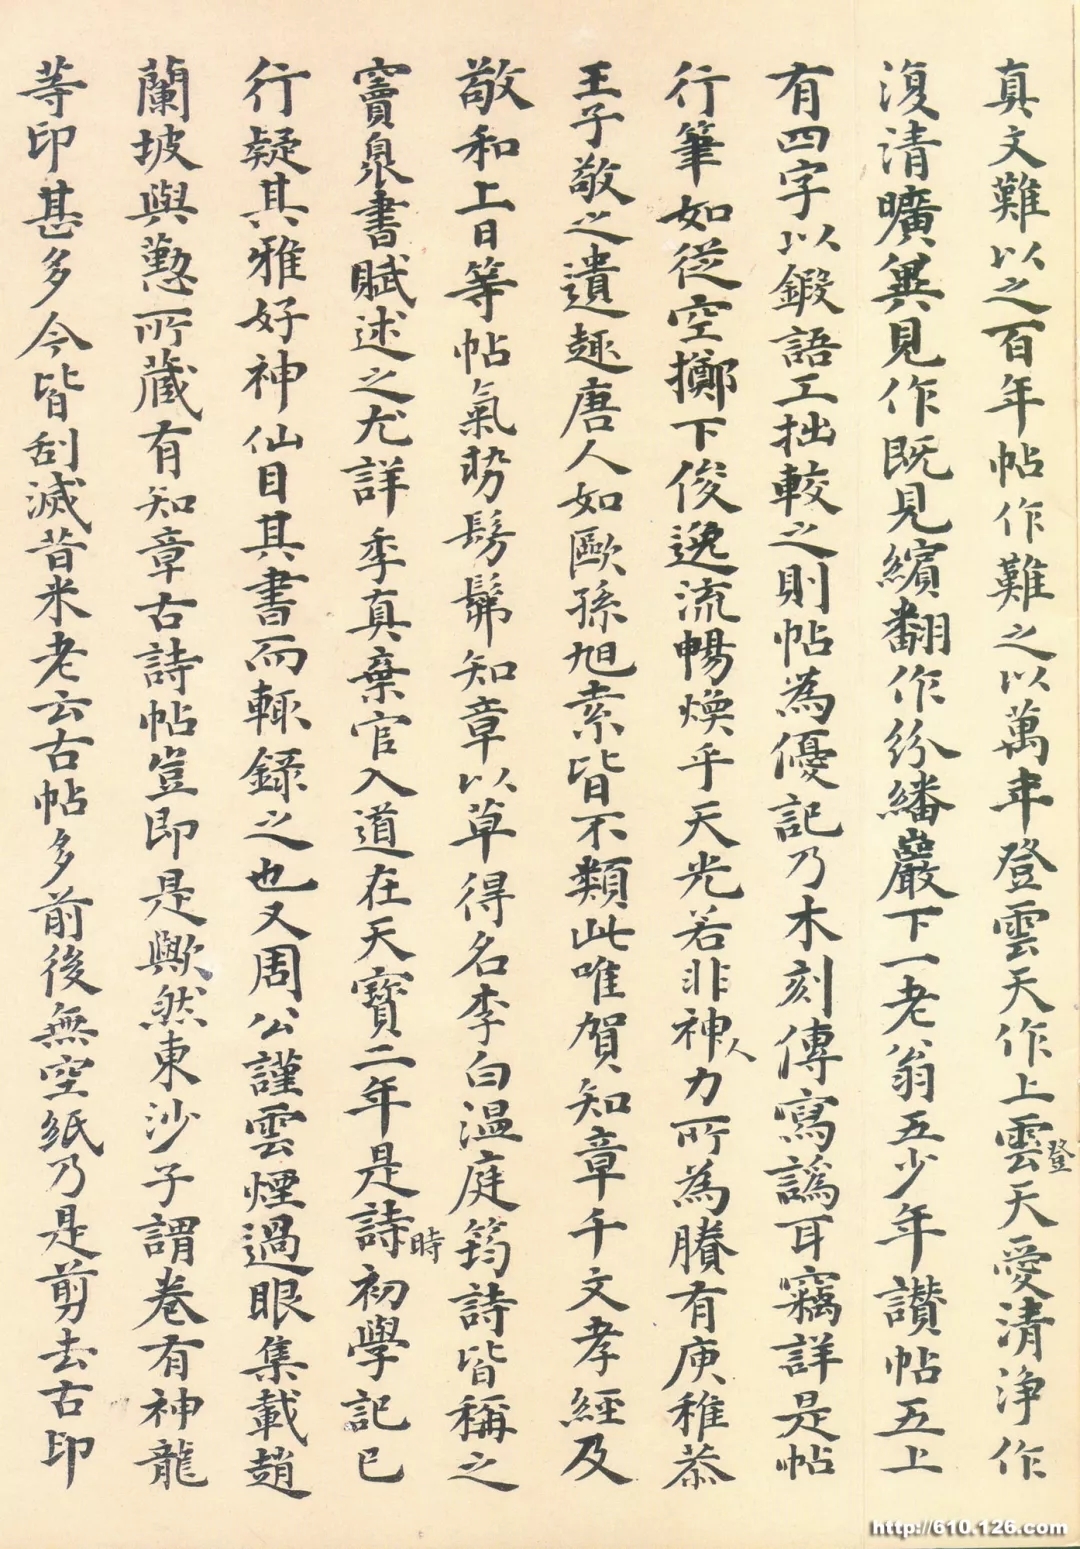 真文難以之百年帖作難之以萬年登雲天作上雲天愛清淨作
登
復清曠異見作既見繽翻作紛繙巖下一老翁五少年讚帖五上
有四字以鍛語工拙較之則帖為優記乃木刻傳寫譌耳竊詳是帖
行筆如從空擲下俊逸流暢煥乎天光若非神力所為賸有庾稚恭
人
王子敬之遺趣唐人如歐孫旭素皆不類此唯賀知章千文孝經及
敬和上日等帖氣勢髣髴知章以草得名李白溫庭筠詩皆稱之
竇臮書賦述之尤詳季真棄官入道在天寶二年是詩初學記已
時
行疑其雅好神仙目其書而輒錄之也又周公謹雲煙過眼集載趙
蘭坡與懃所藏有知章古詩帖豈即是歟然東沙子謂卷有神龍
等印甚多今皆刮滅昔米老云古帖多前後無空紙乃是剪去古印
http://610.126.com